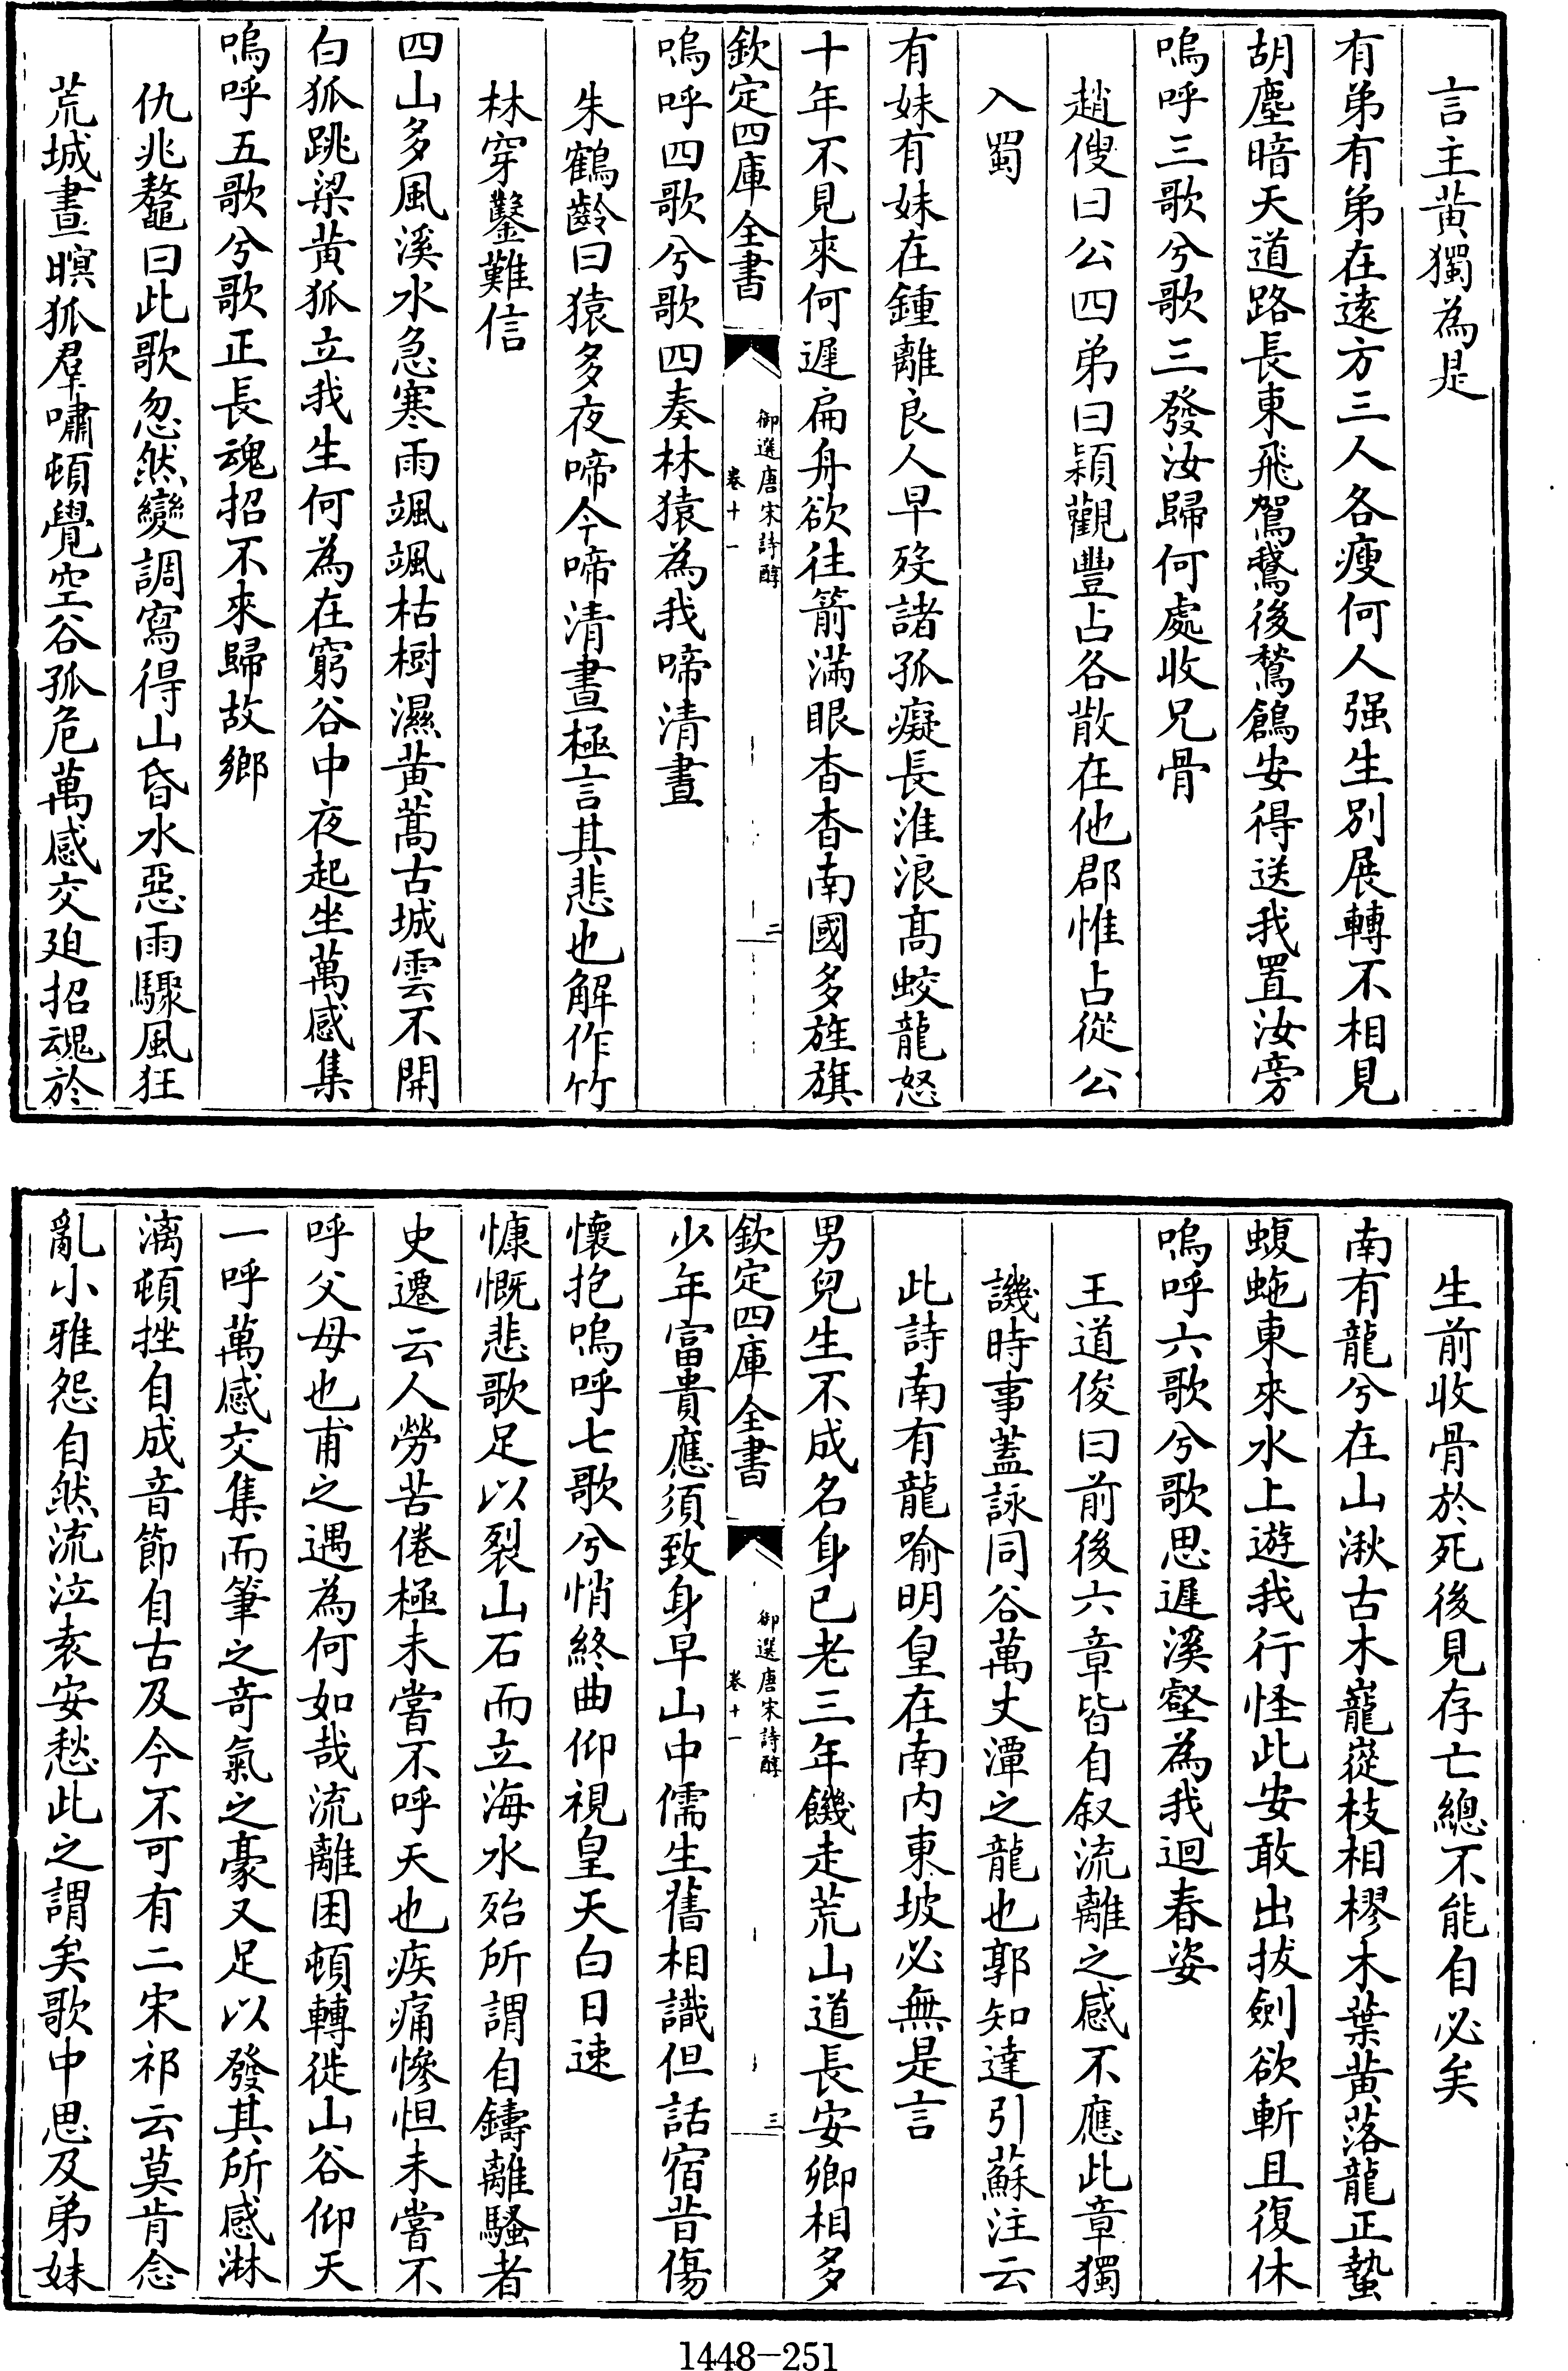 言主黄獨為是
有弟有弟在逺方三人各瘦何人强生别展轉不相見
胡塵暗天道路長東飛鴐鵞後鶖鶬安得送我置汝旁
嗚呼三歌兮歌三發汝歸何處收兄骨
趙傁曰公四弟曰穎觀豐占各散在他郡惟占從公
入蜀
有妹有妹在鍾離良人早歿諸孤癡長淮浪髙蛟龍怒
十年不見來何遲扁舟欲往箭滿眼杳杳南國多旌旗
欽定四庫全書
御選唐宋詩醇
卷十一
二
嗚呼四歌兮歌四奏林猿為我啼清晝
朱鶴齡曰猿多夜啼今啼清晝極言其悲也解作竹
林穿鑿難信
四山多風溪水急寒雨颯颯枯樹濕黄蒿古城雲不開
白狐跳梁黄狐立我生何為在窮谷中夜起坐萬感集
嗚呼五歌兮歌正長魂招不來歸故鄉
仇兆鰲曰此歌忽然變調寫得山昏水惡雨驟風狂
荒城晝暝狐羣嘯頓覺空谷孤危萬感交廹招魂於
生前收骨於死後見存亡總不能自必矣
南有龍兮在山湫古木巃嵸枝相樛木葉黄落龍正蟄
蝮虵東來水上遊我行怪此安敢出拔劍欲斬且復休
嗚呼六歌兮歌思遲溪壑為我迴春姿
王道俊曰前後六章皆自叙流離之感不應此章獨
譏時事葢詠同谷萬丈潭之龍也郭知達引蘇注云
此詩南有龍喻明皇在南内東坡必無是言
男兒生不成名身已老三年饑走荒山道長安卿相多
欽定四庫全書
御選唐宋詩醇
卷十一
三
少年富貴應須致身早山中儒生舊相識但話宿昔傷
懷抱嗚呼七歌兮悄終曲仰視皇天白日速
慷慨悲歌足以裂山石而立海水殆所謂自鑄離騷者
史遷云人勞苦倦極未嘗不呼天也疾痛慘怛未嘗不
呼父母也甫之遇為何如哉流離困頓轉徙山谷仰天
一呼萬感交集而筆之竒氣之豪又足以發其所感淋
漓頓挫自成音節自古及今不可有二宋祁云莫肯念
亂小雅怨自然流泣袁安愁此之謂矣歌中思及弟妹
1448-251